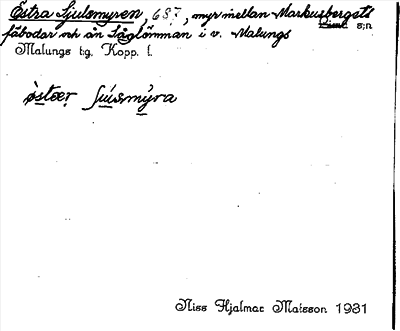 Östra Sjulsmyren, 687, myr mellan Markusbergets
fäbodar och ån Låglömman i v. Malungs s:n
Malungs tg. Kopp. l.
östær ʃuismýra
Niss Hjalmar Matsson 1931